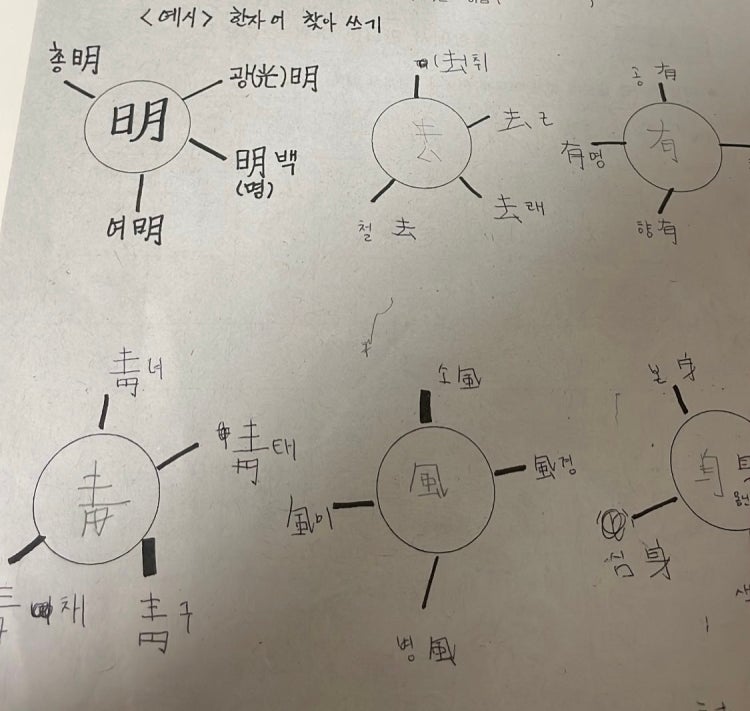 <예시> 한자어 찾아 쓰기
총明
광(光)明
明
明백
(명)
여明
去취
去
去
去래
철去
공有
有
有명
향有
靑녀
靑
靑태
靑채
靑구
소風
風
風경
風미
병風
身
심身